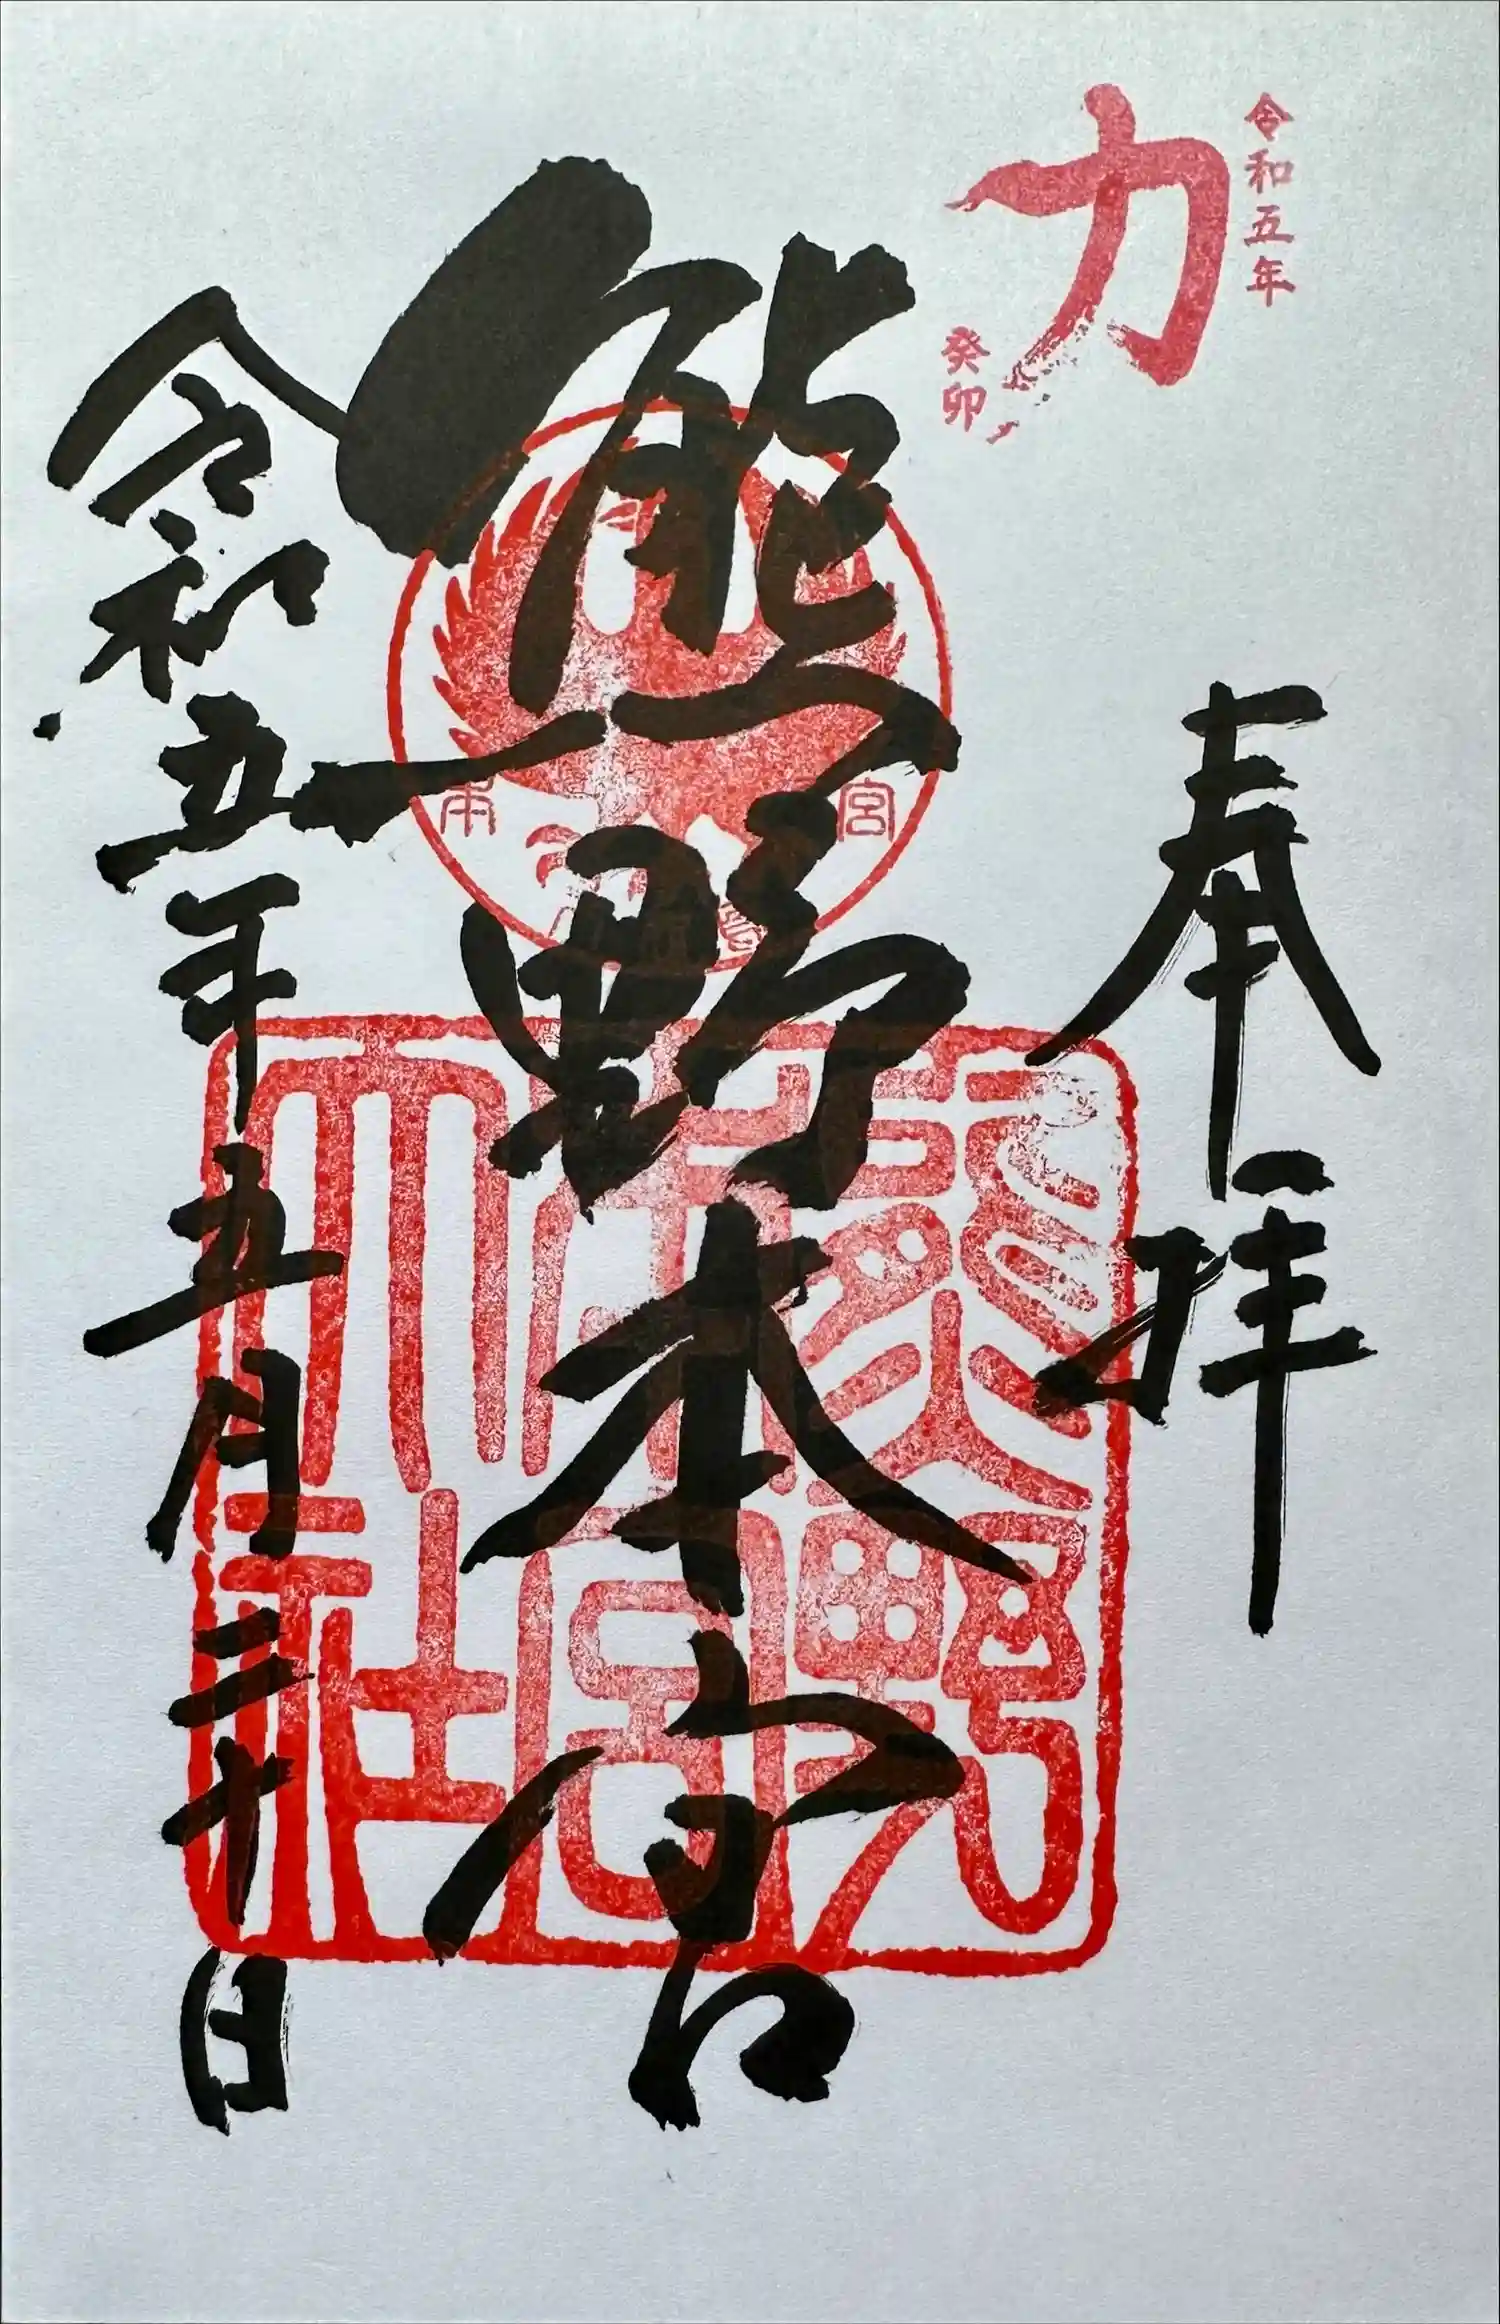 令和五年
力
癸卯
奉拝
熊野本宮
本宮
熊野
本宮
大社
令和五年五月三十日